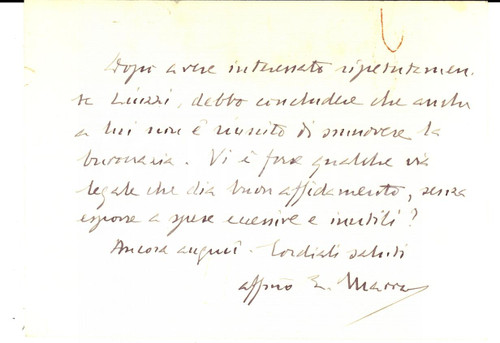 Dopo avere interessato ripetutamen-
te Liuzzi, debbo concludere che anche
a lui non è riuscito di smuovere la
burocrazia. Vi è forse qualche via
legale che dia buon affidamento, senza
esporre a spese eccessive e inutili?
Ancora auguri. Cordiali saluti
affmo E. Marra